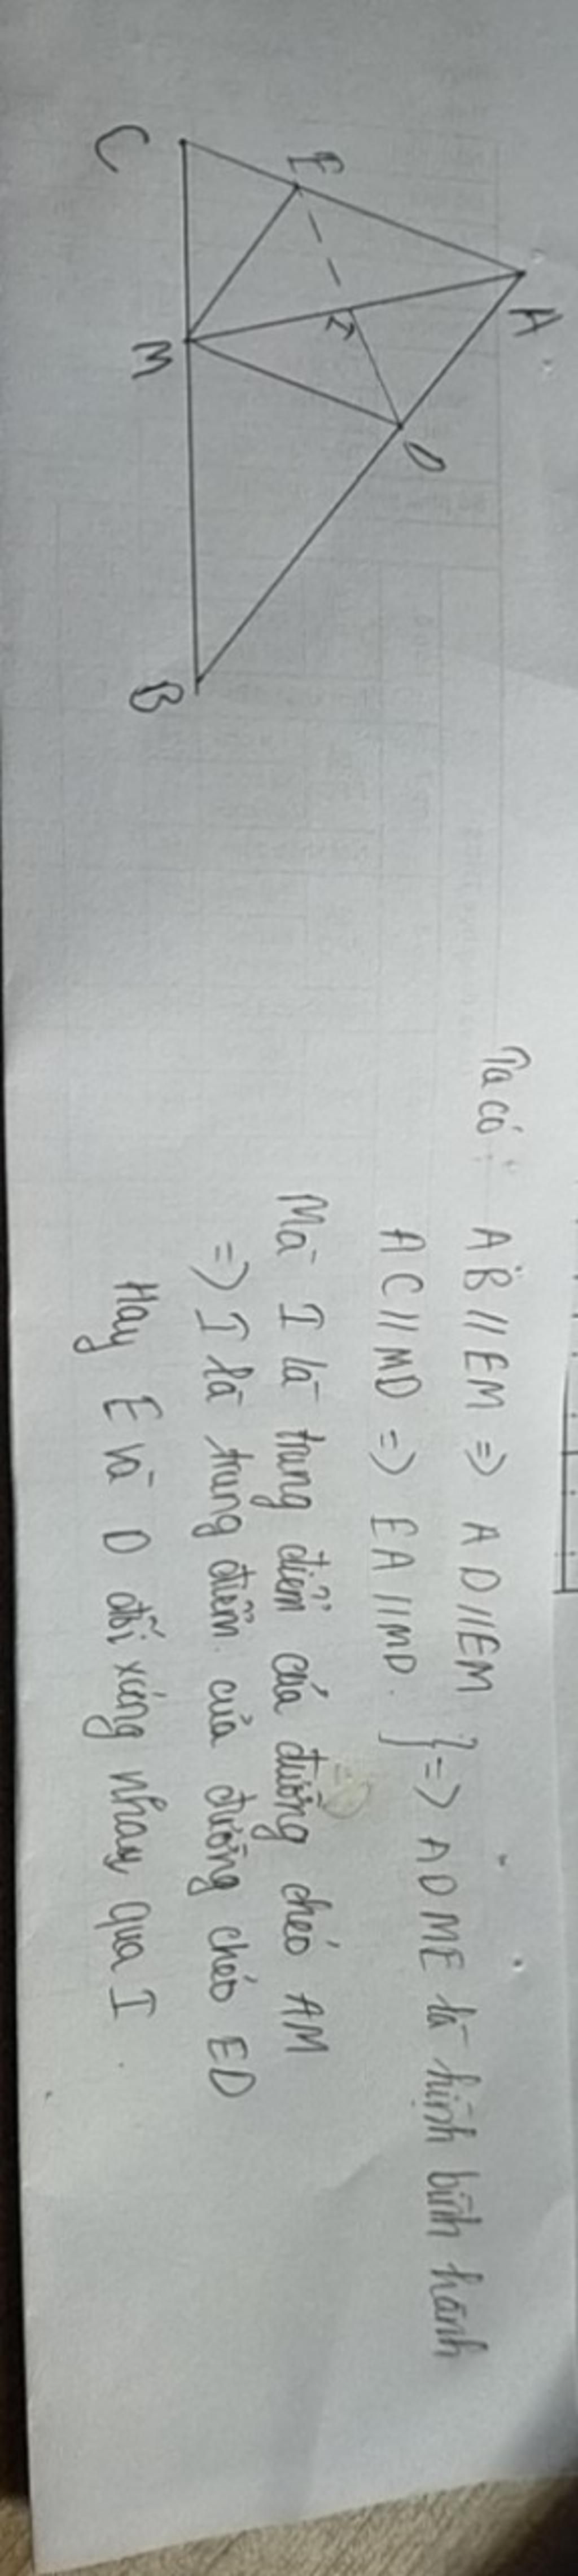 A
E
I
D
C
M
B
Ta có: AB // EM => AD // EM
AC // MD => EA // MD. } => ADME là hình bình hành
Mà I là trung điểm của đường chéo AM
=> I là trung điểm của đường chéo ED
Hay E và D đối xứng nhau qua I.